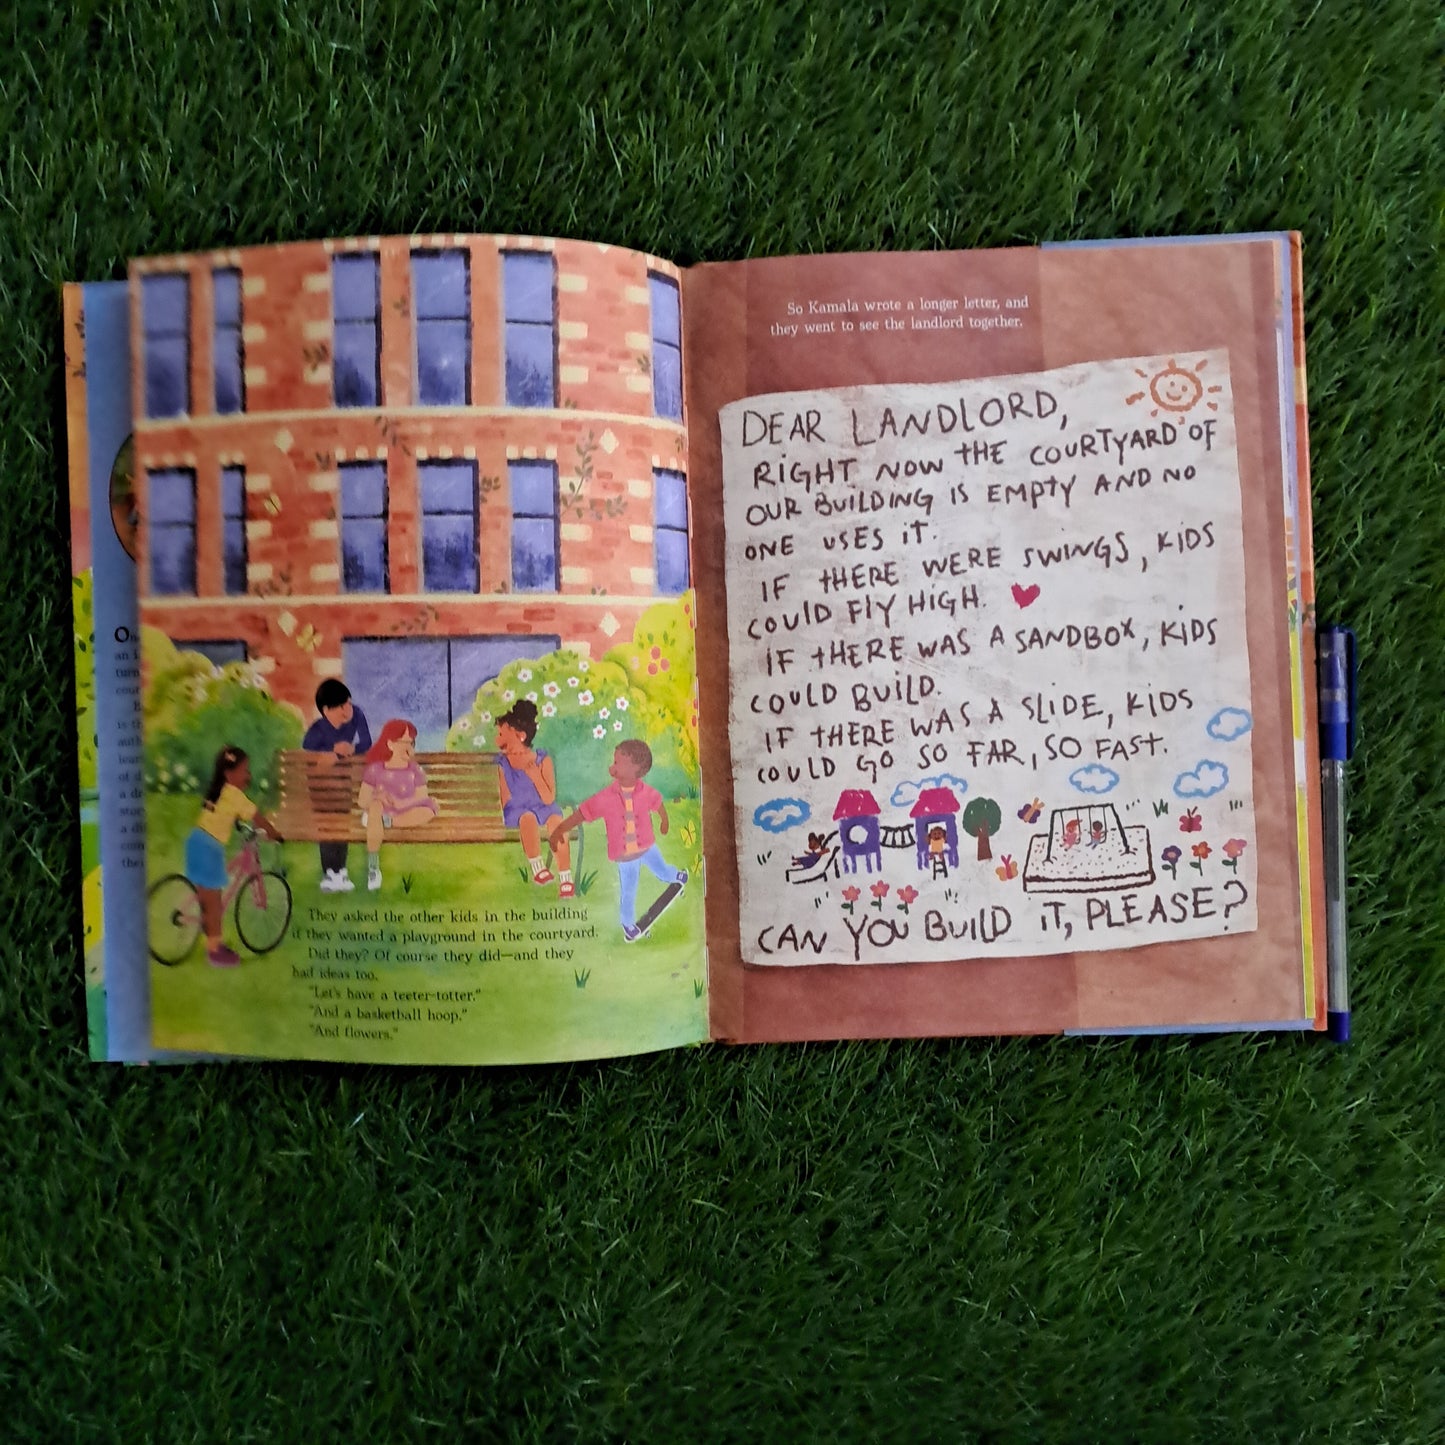 They asked the other kids in the building
if they wanted a playground in the courtyard.
Did they? Of course they did—and they
had ideas too.
"Let's have a teeter-totter."
"And a basketball hoop."
"And flowers."
So Kamala wrote a longer letter, and
they went to see the landlord together.
DEAR LANDLORD,
RiGHT NOW tHE COURTYARD OF
OUR BUiLDiNG iS EMPtY AND NO
ONE USES iT.
iF tHERE WERE SWiNGS, KiDS
COULD FlY HiGH.
iF tHERE WAS A SANDBOX, KiDS
COULD BUiLD.
iF tHERE WAS A SLiDE, KiDS
COULD GO SO FAR, SO FAST.
CAN YOU BUiLD iT, PLEASE?